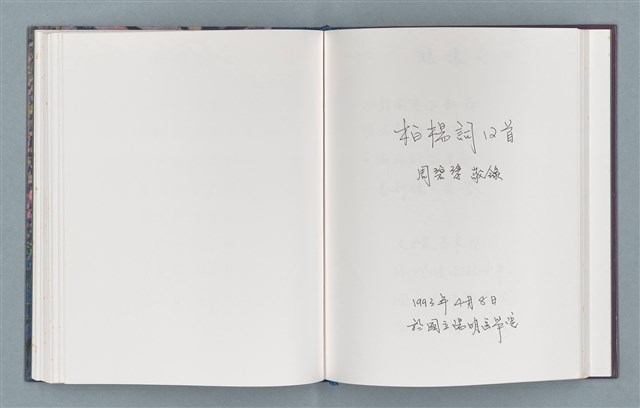 柏楊詞12首
周碧瑟敬錄
1993年4月8日
於國立陽明医學院